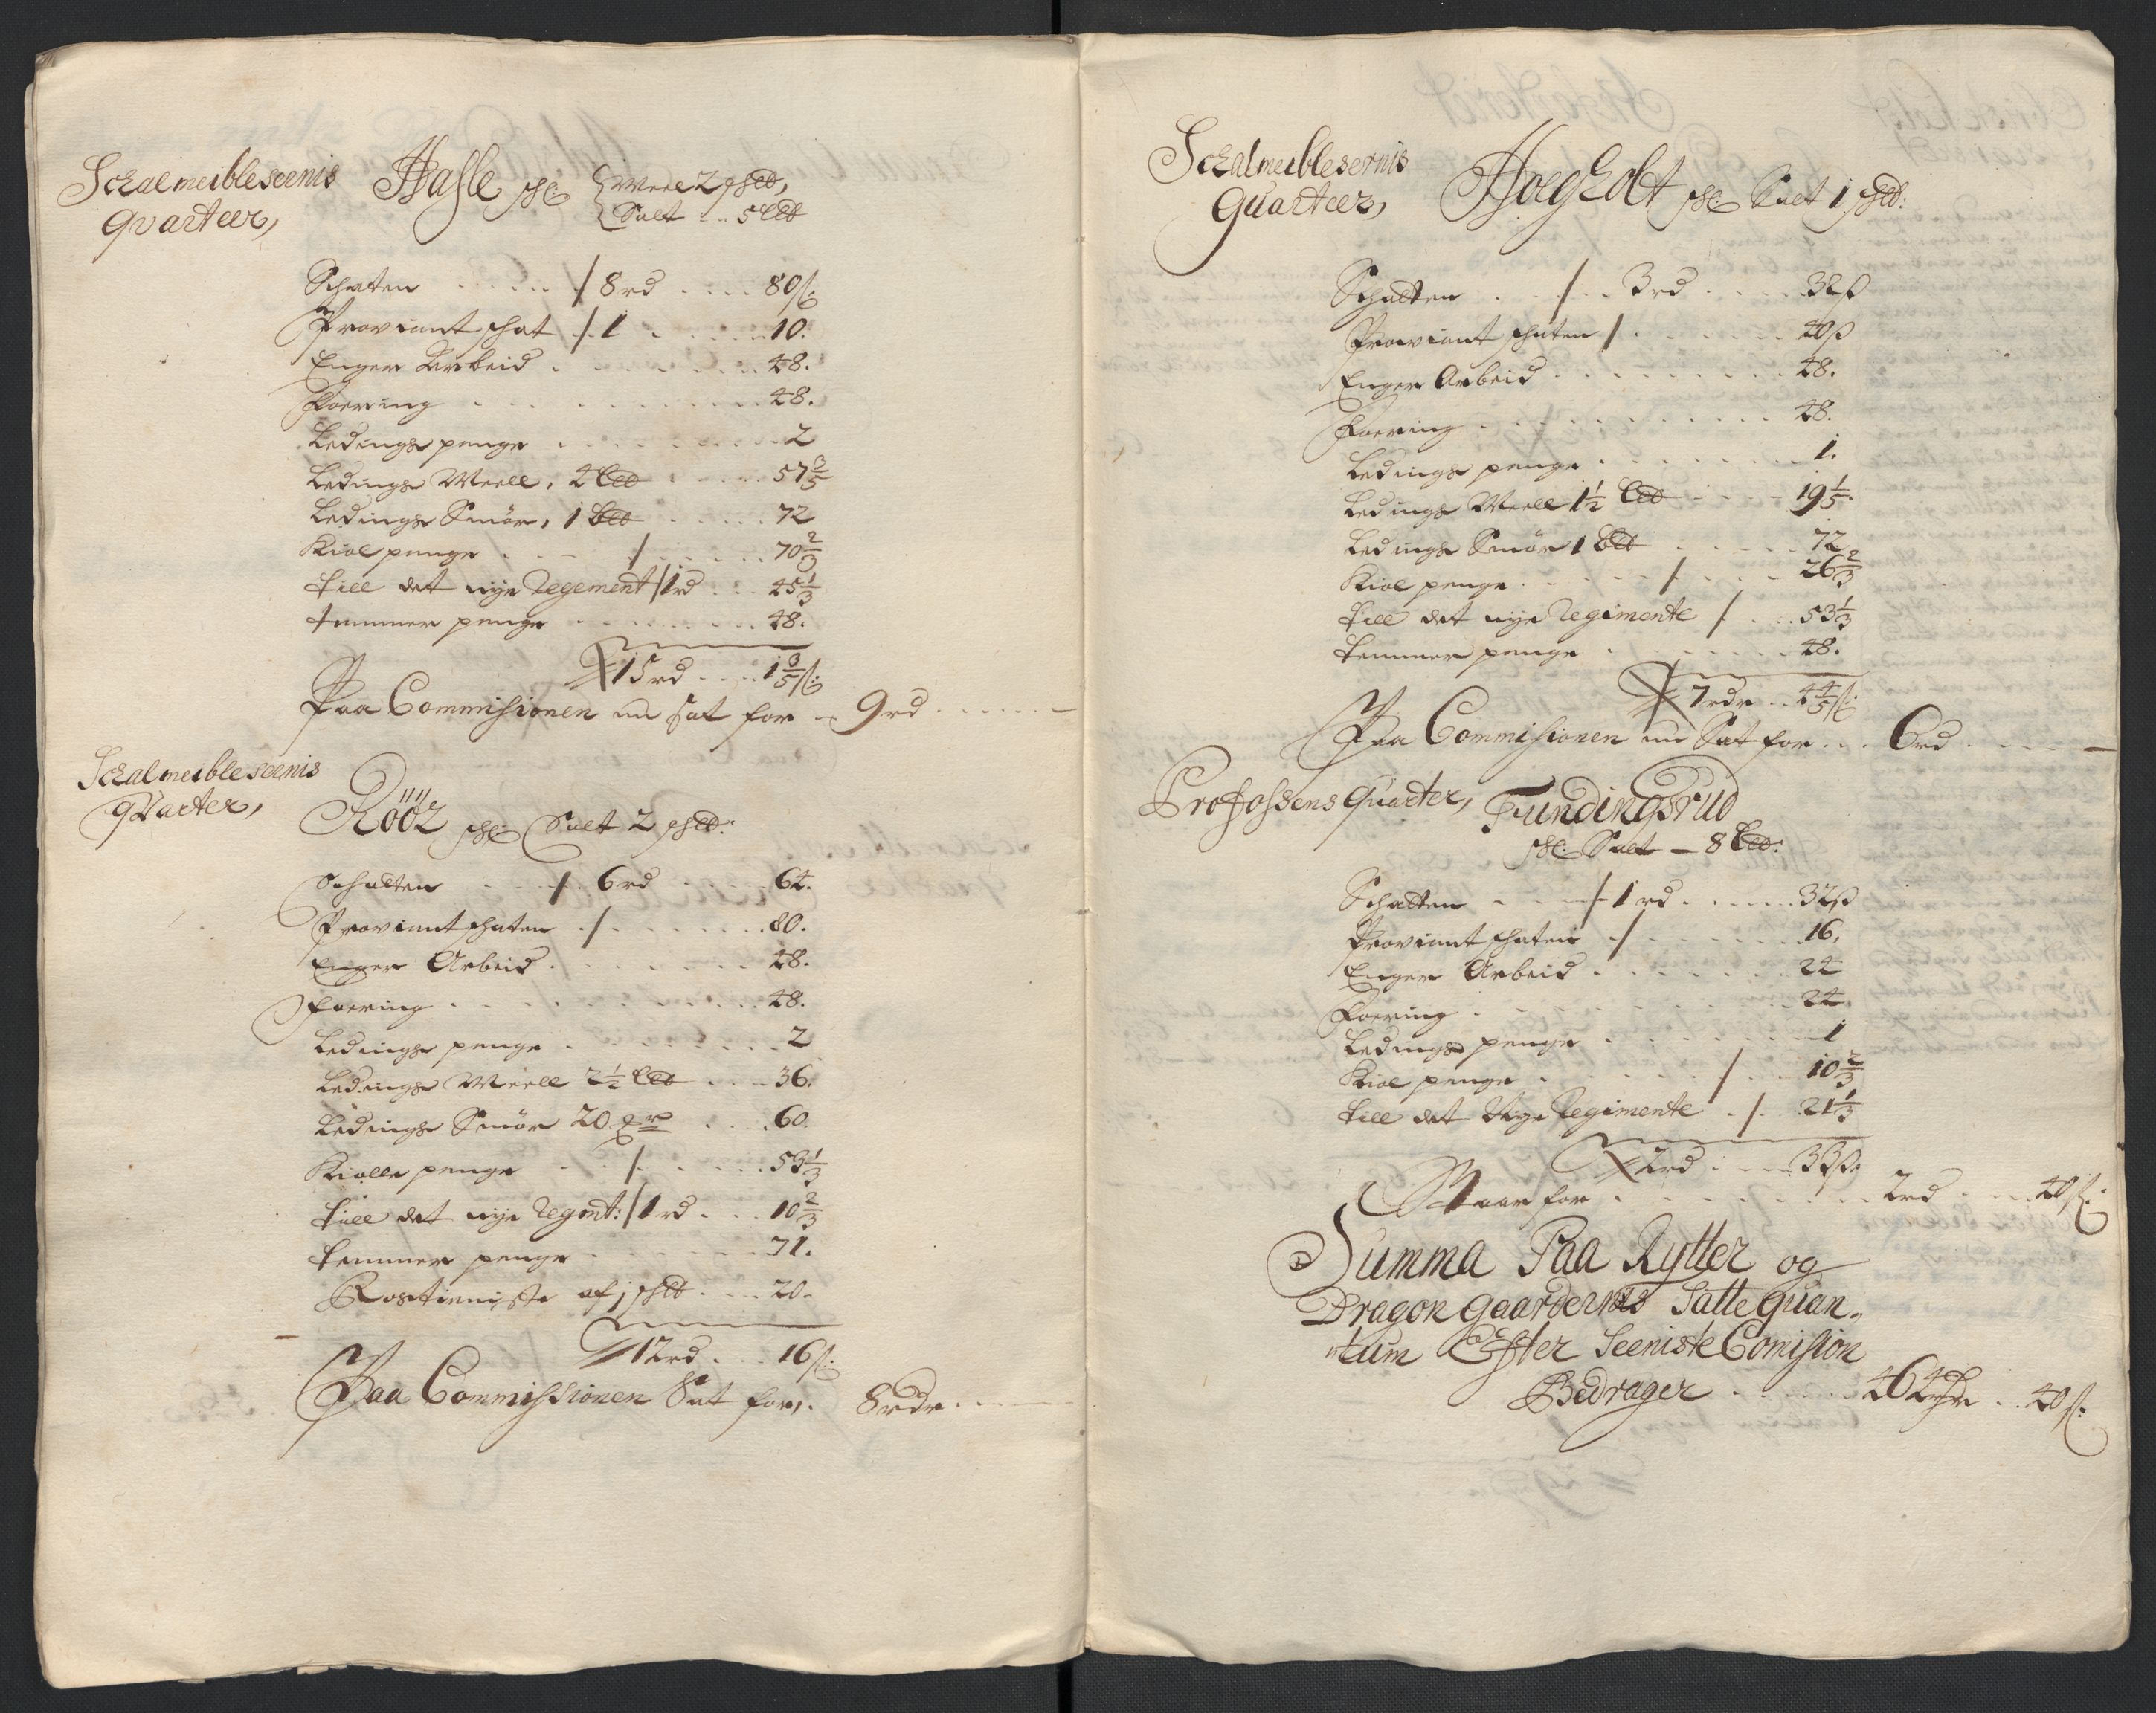 Schalmeiblesernis
Quarteer,
Hasle schl: Meel 2 schpd,
Salt .. 5 Lpd
Schaten ..... / 8 rd .... 80 ß:
Proviant schat / 1 ..... 10.
Enger Arbeid ..... 48.
Foering ..... 48.
Ledings penge ..... 2
Ledings Meell, 4 Lpd .... 57 3/5
Ledings Smör, 1 Lpd .... 72
Kiol penge .... / .... 70 2/3
till det nye Regement / 1 rd ... 45 1/3
temmer penge ..... 48.
15 rd .... 1 3/5 ß:
Paa Commissionen un sat for - 9 rd ..... -
Schalmeibleseenis
qvarter,
Rööz schl: Salt 2 schpd:
Schatten ... / . 6 rd .... 64.
Proviant schaten . / ..... 80.
Enger Arbeid ..... 48.
Foering ..... 48.
Ledings penge ..... 2
Ledings Meell 2 1/2 Lpd ... 36.
Ledings Smör 20 ... 60.
Kiolle penge ... / .... 53 1/3
till det nye Regmt: / 1 rd ... 10 2/3
temmer penge ..... 71.
Rostieniste af 1 schpd .... 20.
12 rd ... 16 ß:
Paa Commissionen Sat for, . 8 rdr .... -
Schalmeiblesernis
Quarteer,
Hoegholt schl: Salt 1 schpd:
Schatten .. / .. 3 rd .... 32 ß
Proviant schaten / ..... 40 ß
Enger Arbeid ..... 48.
Foering ..... 48.
Ledings penge ..... 1.
Ledings Meell 1 1/2 Lpd ... 19 1/5.
Ledings Smör 1 Lpd .... 72
Kiol penge .... / ... 26 2/3
till det nye Regimente / ... 53 1/3
temmer penge ..... 48.
7 rdr .. 4 4/5 ß:
Paa Commisionen un Sat for ... 6 rd .... -
Profossens Quarter, Fundingsrud
schl: Salt - 8 Lpd:
Schatten ... / 1 rd ..... 32 ß
Proviant schaten . / ..... 16,
Enger Arbeid ..... 24
Foering ..... 24
Ledings penge ..... 1
Kiol penge .... / ... 10 2/3
till det Nye Regimente . / . 21 1/3
2 rd ... 33 ß.
Maar for ..... 2 rd ... 40 ß:
Summa Paa Rytter og
Dragon gaardernes Satte Quan-
tum Efter Seeniste Comission
Bedrager ..... 464 rdr .. 40 ß: